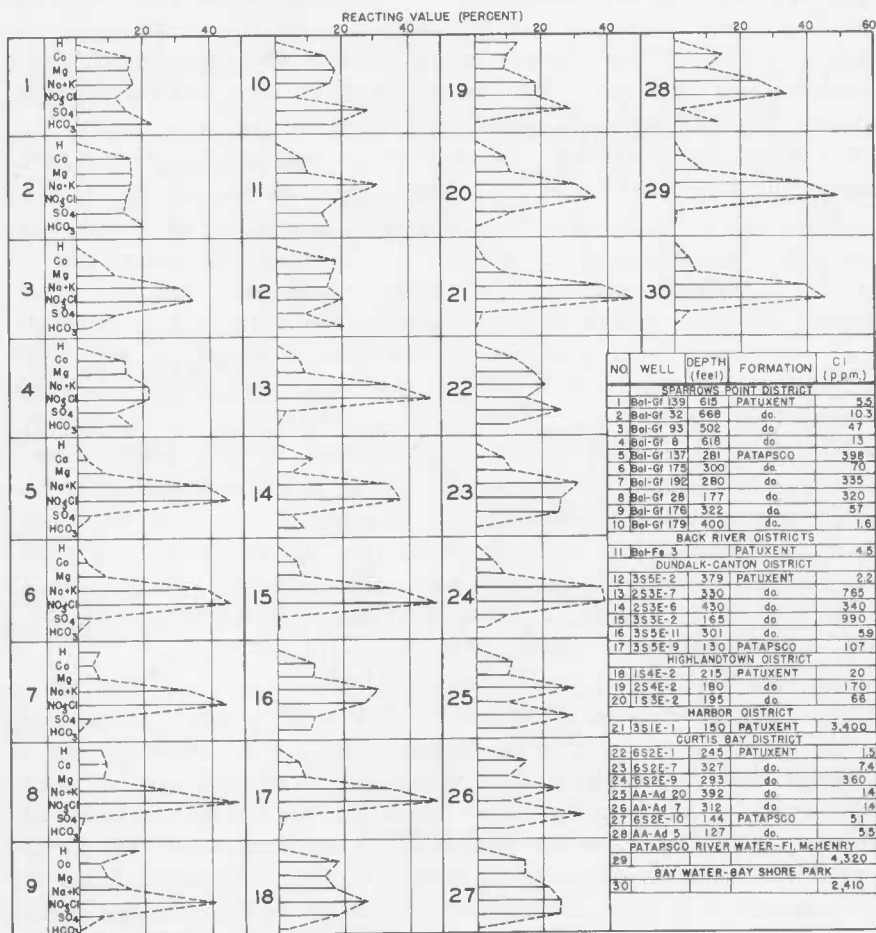 REACTING VALUE (PERCENT)
20 40 20 40 20 40 20 40 60
1
H
Ca
Mg
Na+K
NO3Cl
SO4
HCO3
10
19
28
2
H
Ca
Mg
Na+K
NO3Cl
SO4
HCO3
11
20
29
3
H
Ca
Mg
Na+K
NO3Cl
SO4
HCO3
12
21
30
4
H
Ca
Mg
Na+K
NO3Cl
SO4
HCO3
13
22
5
H
Ca
Mg
Na+K
NO3Cl
SO4
HCO3
14
23
6
H
Ca
Mg
Na+K
NO3Cl
SO4
HCO3
15
24
7
H
Ca
Mg
Na+K
NO3Cl
SO4
HCO3
16
25
8
H
Ca
Mg
Na+K
NO3Cl
SO4
HCO3
17
26
9
H
Ca
Mg
Na+K
NO3Cl
SO4
HCO3
18
27
NO. WELL DEPTH (feel) FORMATION Cl (p.p.m.)
SPARROWS POINT DISTRICT
1 Bal-Gf 139 615 PATUXENT 5.5
2 Bal-Gf 32 668 do. 10.3
3 Bal-Gf 93 502 do 47
4 Bal-Gf 8 618 do 13
5 Bal-Gf 137 281 PATAPSCO 398
6 Bal-Gf 175 300 do. 70
7 Bal-Gf 192 280 do. 335
8 Bal-Gf 28 177 do 320
9 Bal-Gf 176 322 do 57
10 Bal-Gf 179 400 do. 1.6
BACK RIVER DISTRICTS
11 Bal-Fe 3 PATUXENT 4.5
DUNDALK-CANTON DISTRICT
12 3S5E-2 379 PATUXENT 2.2
13 2S3E-7 330 do. 765
14 2S3E-6 430 do. 340
15 3S3E-2 165 do 990
16 3S5E-11 301 do. 5.9
17 3S5E-9 130 PATAPSCO 107
HIGHLANDTOWN DISTRICT
18 1S4E-2 215 PATUXENT 20
19 2S4E-2 180 do 170
20 1S3E-2 195 do. 66
HARBOR DISTRICT
21 3S1E-1 150 PATUXENT 3,400
CURTIS BAY DISTRICT
22 6S2E-1 245 PATUXENT 1.5
23 6S2E-7 327 do. 7.4
24 6S2E-9 293 do. 360
25 AA-Ad 20 392 do. 1.4
26 AA-Ad 7 312 do 1.4
27 6S2E-10 144 PATAPSCO 51
28 AA-Ad 5 127 do. 5.5
PATAPSCO RIVER WATER-Ft. McHENRY
29 4,320
BAY WATER-BAY SHORE PARK
30 2,410